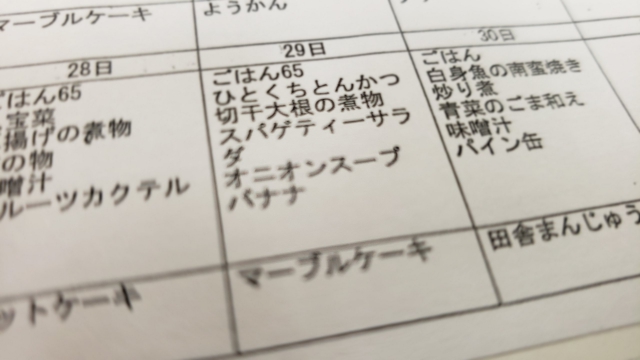 マーブルケーキ
ようかん
28日
ごはん65
宝菜
揚げの煮物
の物
噌汁
ルーツカクテル
ットケーキ
29日
ごはん65
ひとくちとんかつ
切干大根の煮物
スパゲティーサラ
ダ
オニオンスープ
バナナ
マーブルケーキ
30日
ごはん
白身魚の南蛮焼き
炒り煮
青菜のごま和え
味噌汁
パイン缶
田舎まんじゅう